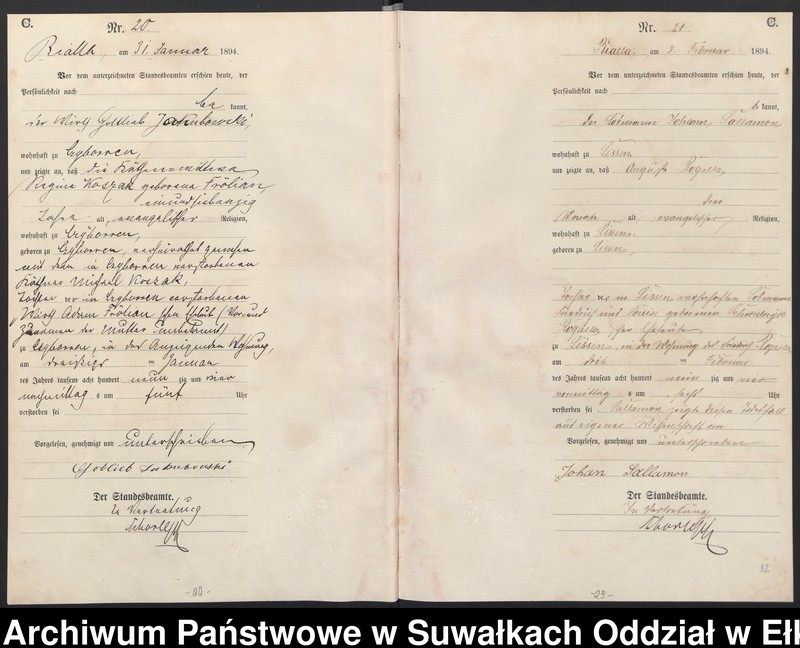 C.
Nr. 20
Bialla, am 31. Januar 1894.
Vor dem unterzeichneten Standesbeamten erschien heute, der
Persönlichkeit nach
be kannt,
der Wirth Gottlieb Jakubowski,
wohnhaft zu Czyborren,
und zeigte an, daß die Käthnerwittwe
Regina Koszak geborene Frölian,
einundsiebenzig
Jahre alt, evangelischer Religion,
wohnhaft zu Czyborren,
geboren zu Czyborren, verheirathet gewesen
mit dem in Czyborren verstorbenen
Käthner Michael Koszak,
Tochter der in Czyborren verstorbenen
Wirth Adam Frölian
der Mutter unbekannt
zu Czyborren, in der Wohnung,
am dreißigsten Januar
des Jahres tausend acht hundert neun zig und vier
nachmittag s um fünf Uhr
verstorben sei
Vorgelesen, genehmigt und unterschrieben
Gottlieb Jakubowski
Der Standesbeamte.
In Vertretung
- 22 -
C.
Nr. 21
Bialla, am 3. Februar 1894.
Vor dem unterzeichneten Standesbeamten erschien heute, der
Persönlichkeit nach
be kannt,
der Losmann Johann Sallamon
wohnhaft zu Lissen
und zeigte an, daß Auguste
drei
Monate alt, evangelischer Religion,
wohnhaft zu Lissen
geboren zu Lissen,
Tochter der in Lissen wohnhaften Losmann
Friedrich und geborenen
Eheleute
zu Lissen, in der Wohnung des Friedrich
am Februar
des Jahres tausend acht hundert neun zig und vier
vormittag s um sechs Uhr
verstorben sei. Sallamon zeigt diesen Todesfall
aus eigener Wissenschaft an
Vorgelesen, genehmigt und unterschrieben
Johan Sallamon
Der Standesbeamte.
In Vertretung
12
- 23 -
Archiwum Państwowe w Suwałkach Oddział w Ełk